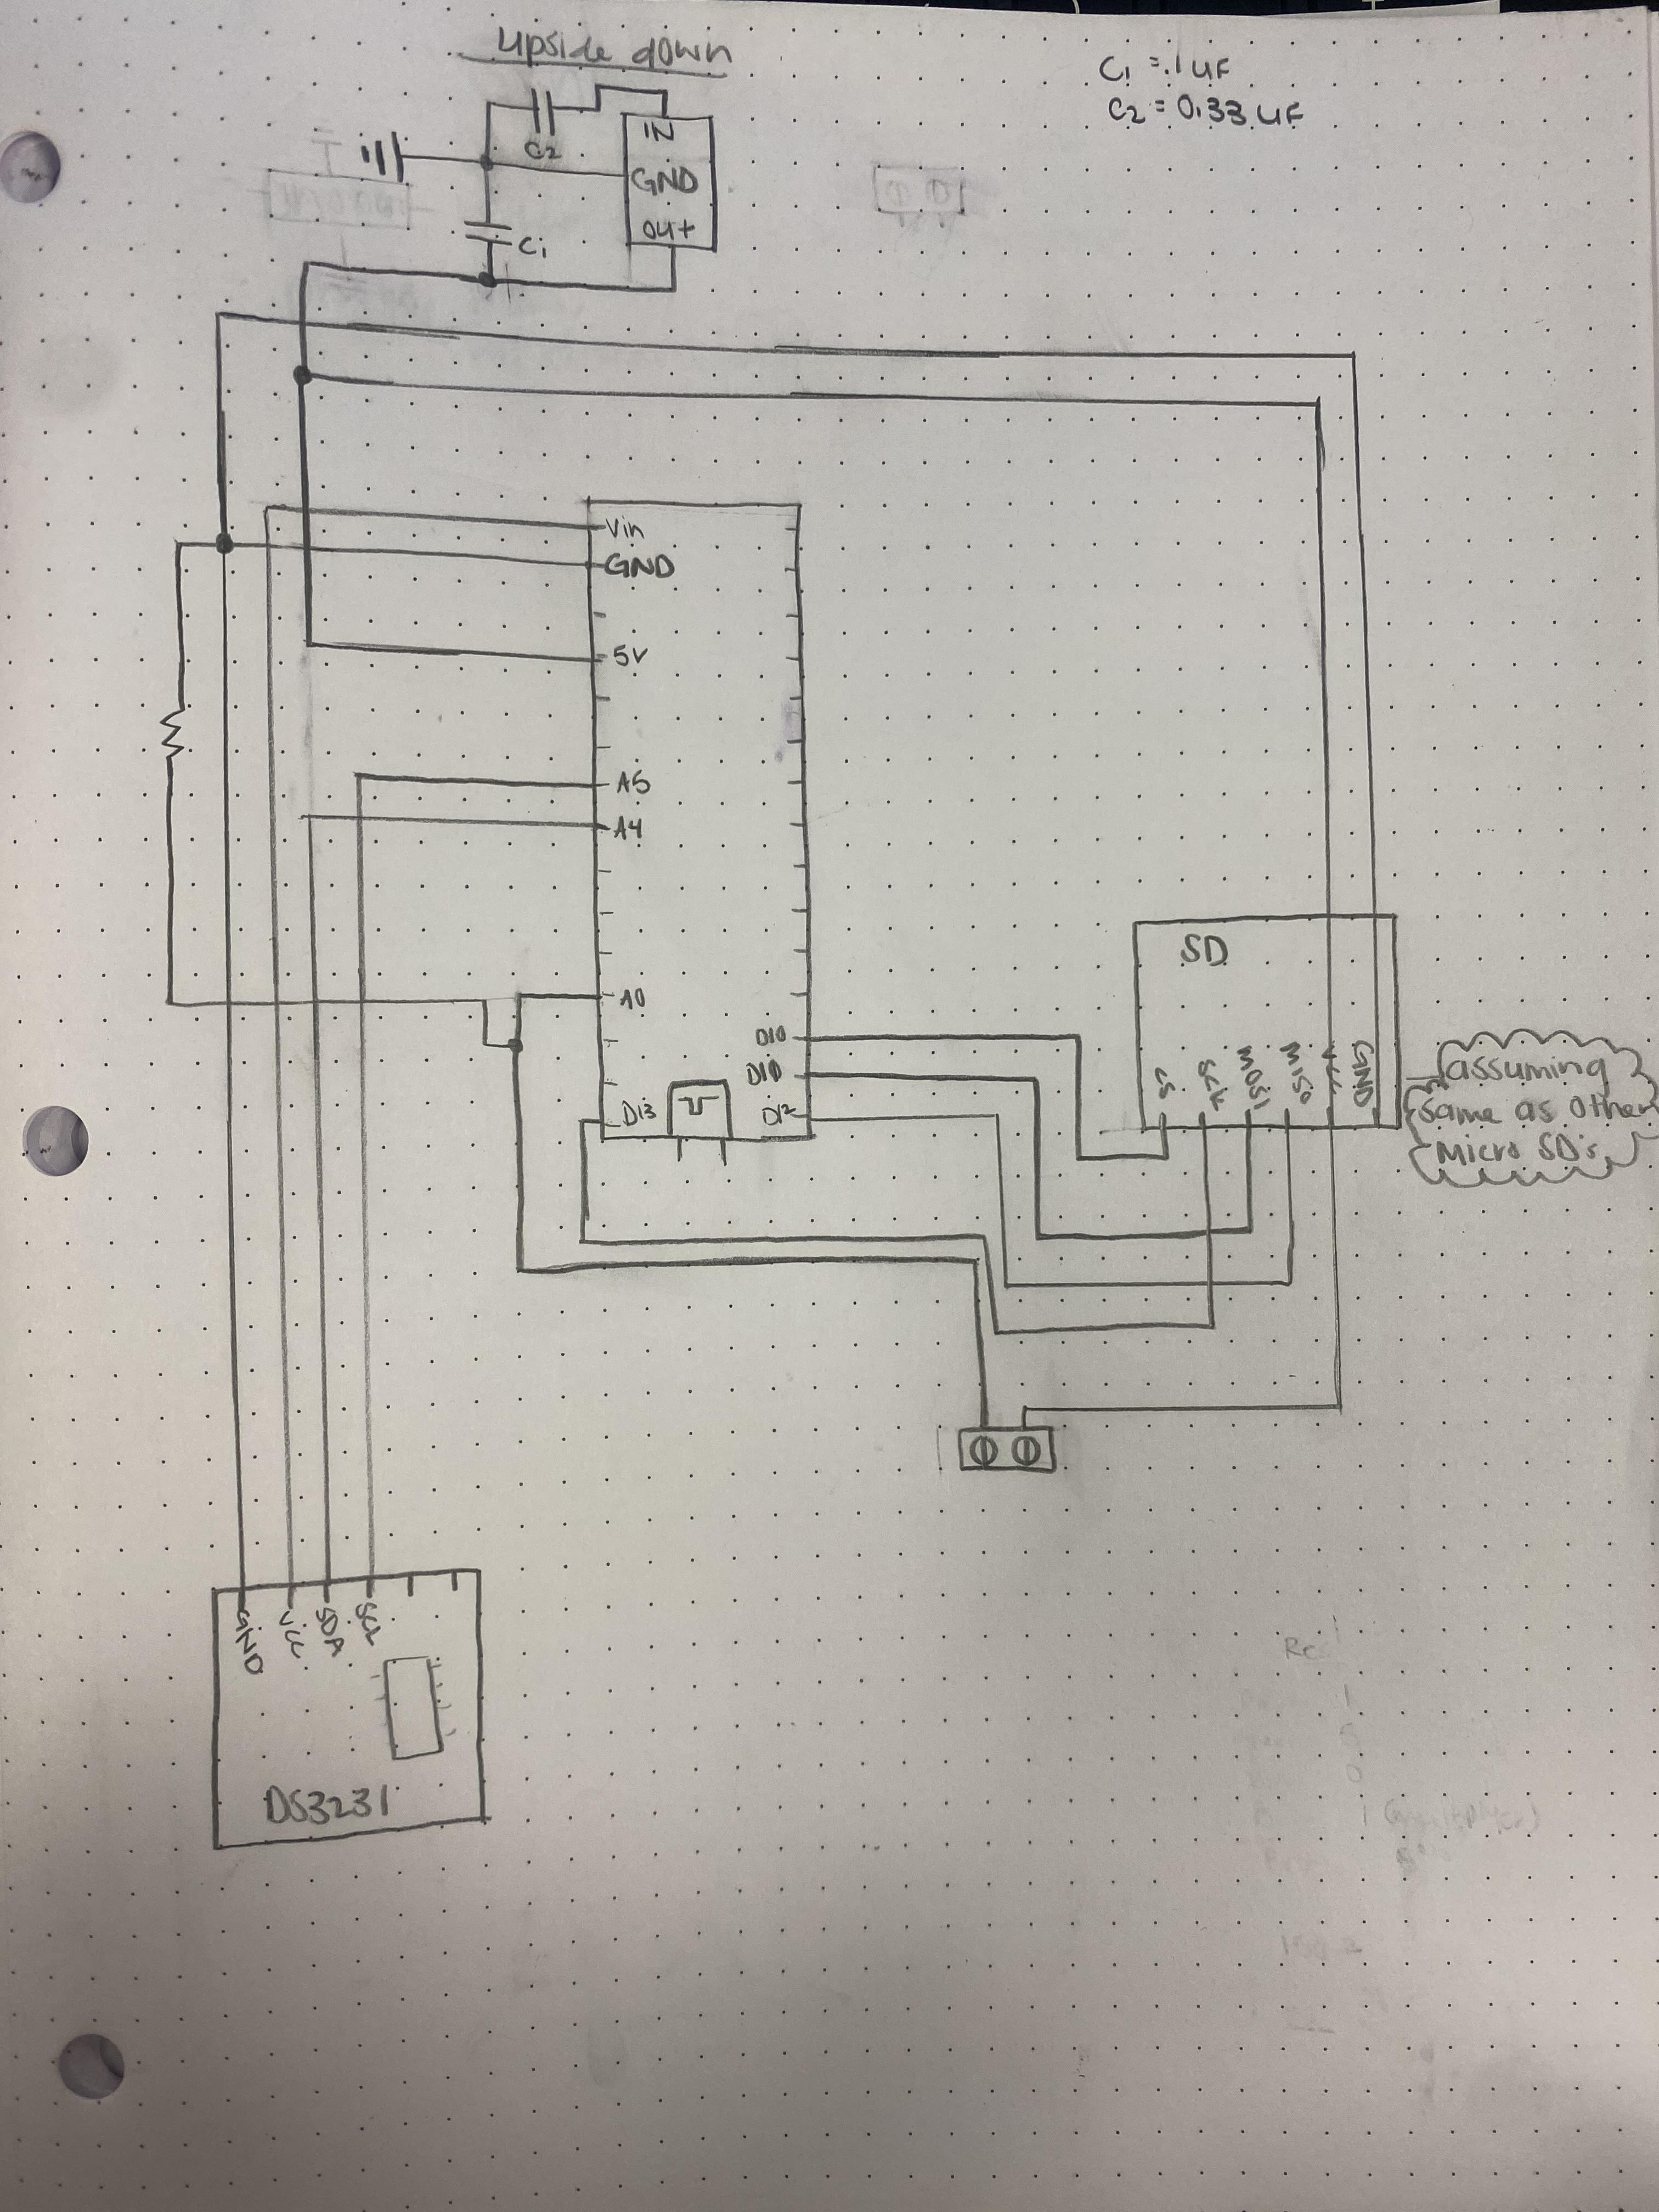 Upside down
C1 = .1 uF
C2 = 0.33 uF
C2
IN
GND
out
C1
Vin
GND
5V
A5
A4
A0
D10
D10
D13
D12
SD
CS
SCK
MOSI
MISO
VCC
GND
assuming
same as other
Micro SD's
GND
VCC
SDA
SCL
DS3231